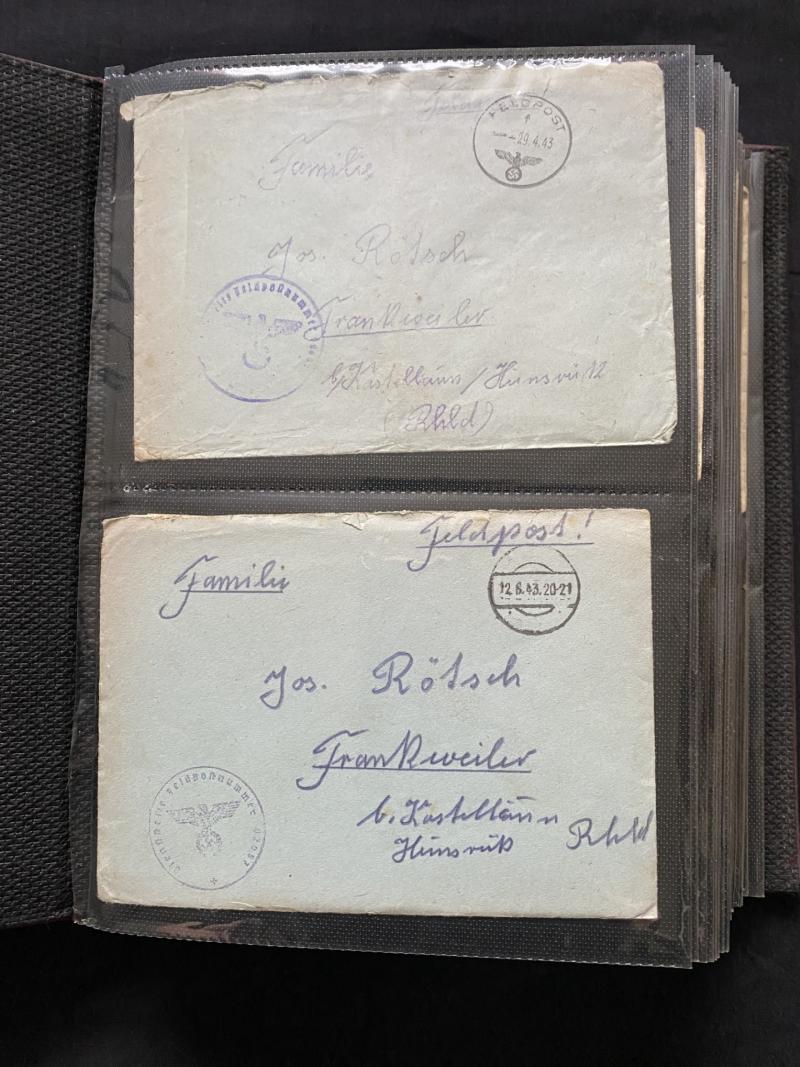 FELDPOST
29.4.43
Familie
Jos. Rötsch
Frankweiler
b/Kastellaun/Hunsrück
(Rhld)
Feldpostnummer
Feldpost!
Familie
12.6.43.20-21
Jos. Rötsch
Frankweiler
b. Kastellaun
Hunsrük Rhld
Dienststelle Feldpostnummer